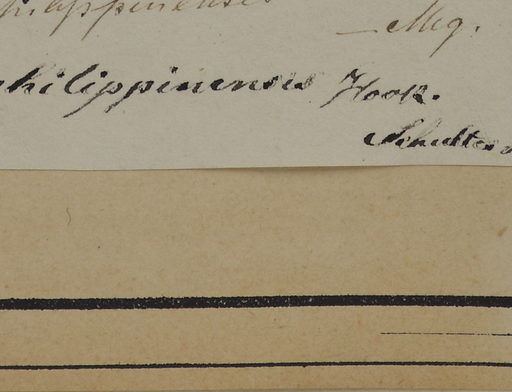 philippinensis
— Meg.
philippinensis Hook.
Schultes